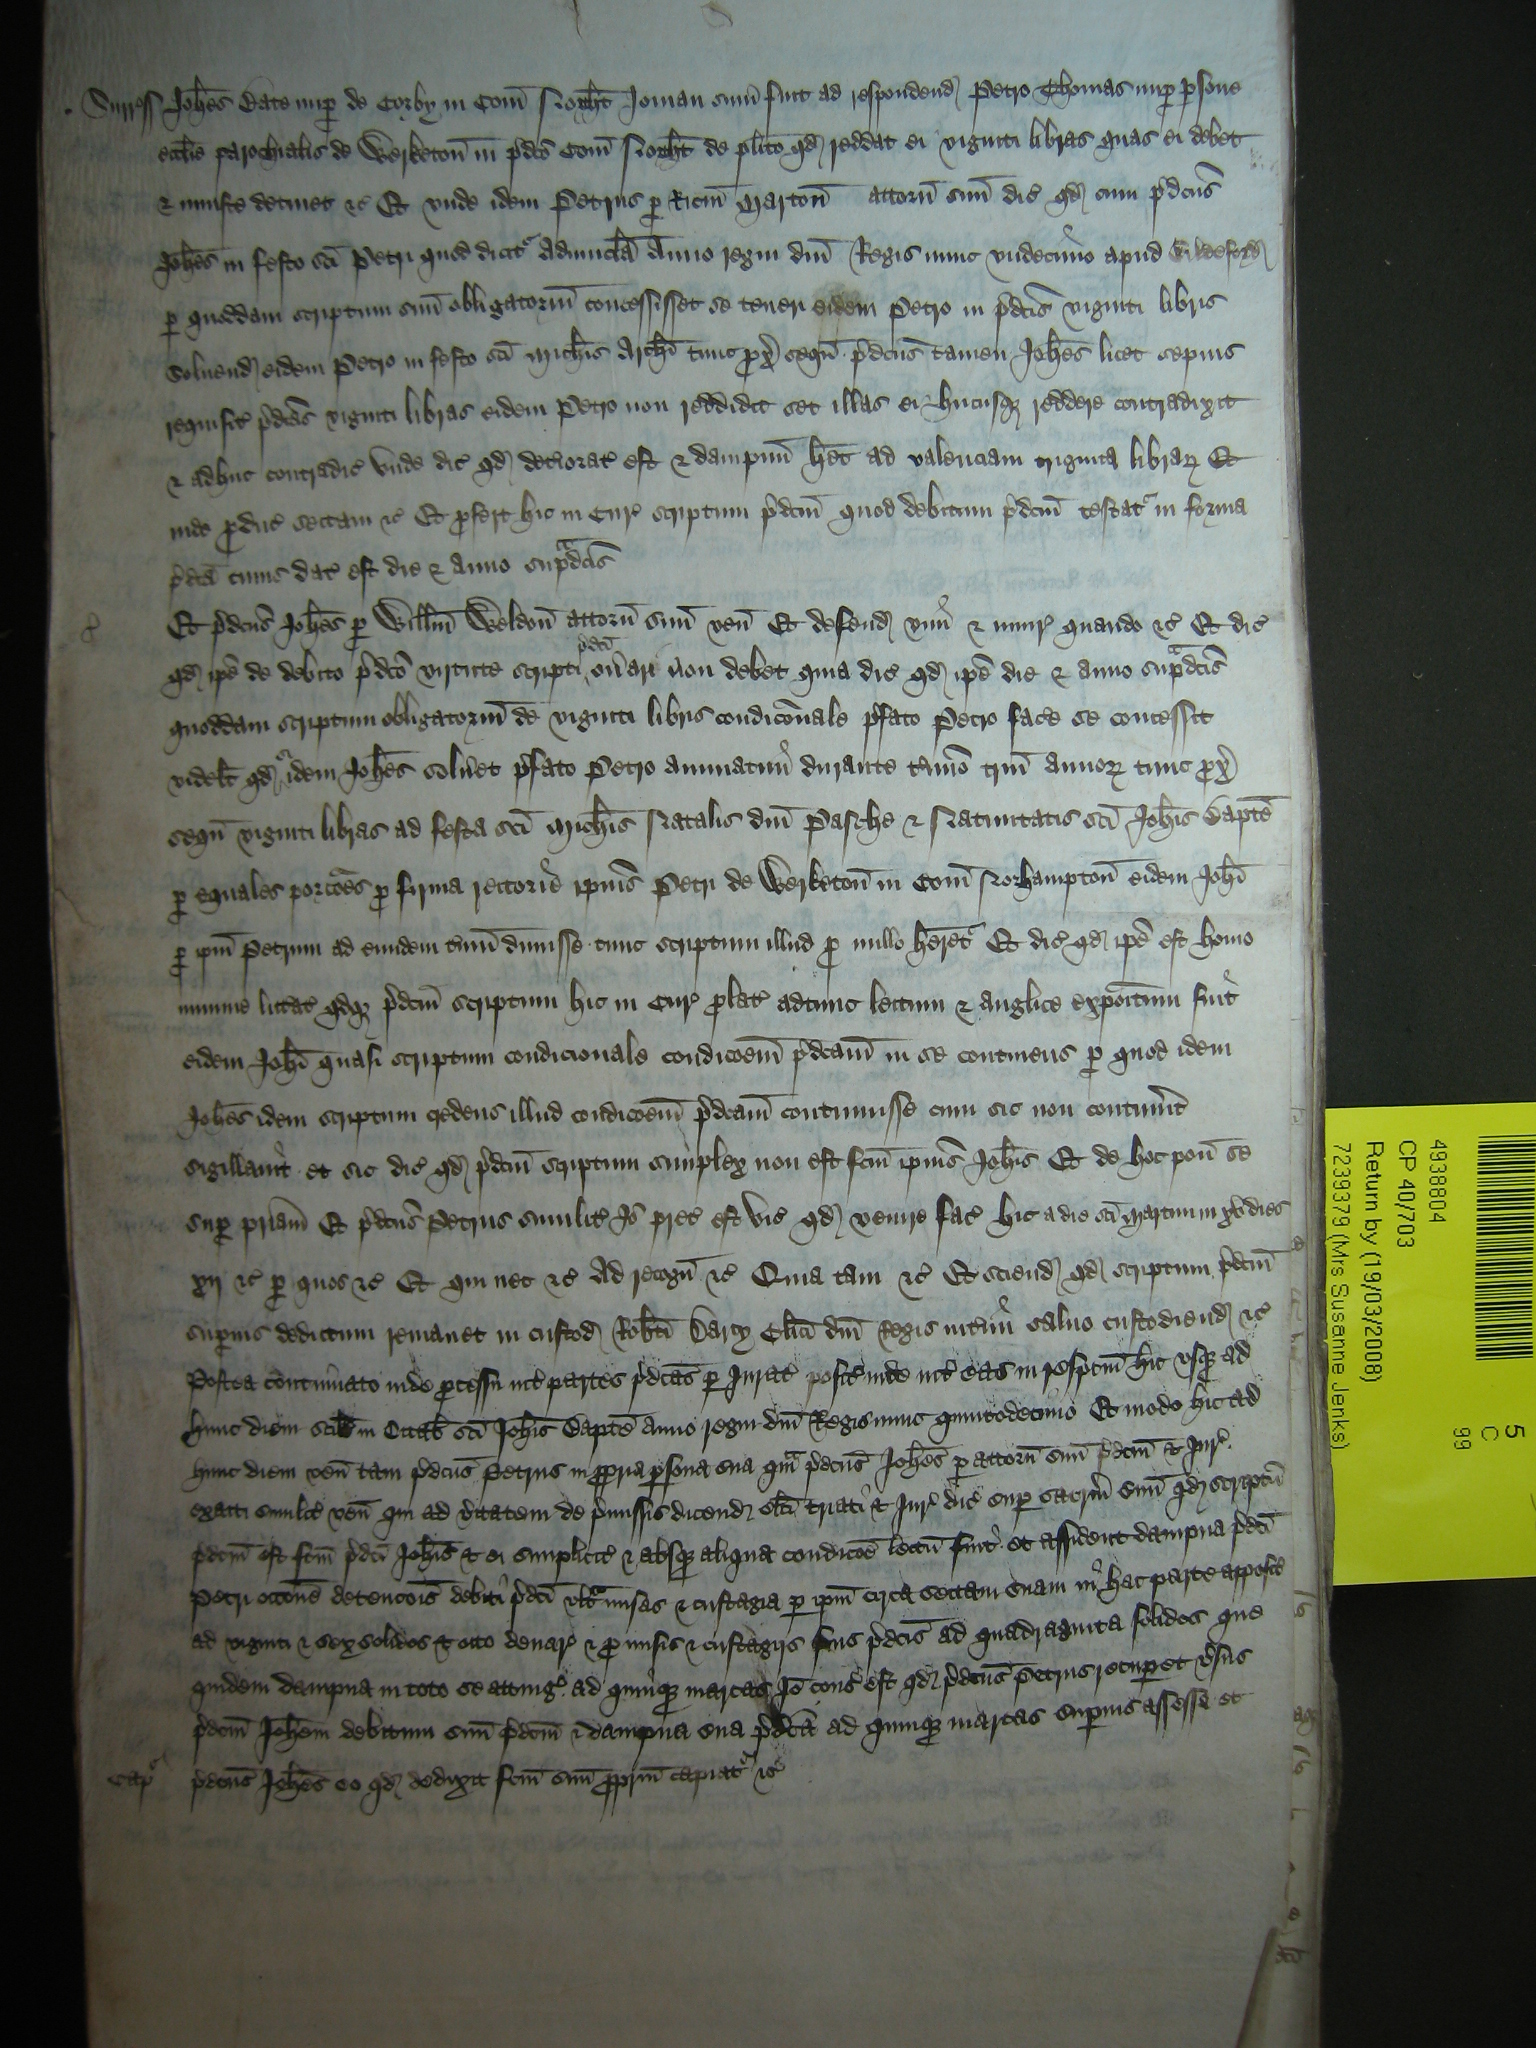 Surress Joh̄es Bate nup̱ de Corby in Com̄ Norh̄t Joman sum̄ fuit ad respondend̄ Petro Thomas nup̱ p̱sone
eccl̄ie parochialis de Werketon̄ in p̄dc̄o Com̄ Norh̄t de pl̄ito qd̄ reddat ei viginti libras quas ei debet
& iniuste detinet &c̄ Et vnde idem Petrus p̱ Ric̄m Marton̄ attorn̄ suū dic̄ qd̄ cum p̄dc̄us
Joh̄es in festo sc̄i Petri quod dicit͛ Aduincl̄a Anno regni dn̄i Regis nunc vndecimo apud Guldeford̄
p̱ quoddam scriptum suū obligatoriū concessisset se teneri eidem Petro in p̄dc̄is viginti libris
soluend̄ eidem Petro in festo sc̄i Mich̄is Arch̄i tunc p̱x̄ seqū p̄dc̄us tamen Joh̄es licet sepius
requisit͛ p̄dc̄as viginti libras eidem Petro non reddidit set illas ei hucusq̨ reddere contradixit
& adhuc contradic̄ Vnde dic̄ qd̄ deteriorat͛ est & dampnū h̄et ad valenciam triginta librar̨ Et
inde p̱duc̄ sectam &c̄ Et p̱fert hic in Cur͛ scriptum p̄dc̄m quod debitum p̄dc̄m testat͛ in forma
p̄dc̄a cuius dat͛ est die & anno sup̱dc̄is
Et p̄dc̄us Joh̄es p̱ Will̄m Weldon̄ attorn̄ suū ven̄ Et defend̄ vim̄ & iniur͛ quando &c̄ Et dic̄
qd̄ ip̄e de debito p̄dc̄o virtute scripti p̄dc̄i on̄ari non debet quia dic̄ qd̄ ip̄e die & anno sup̱dc̄is
quoddam scriptum obligatoriū de viginti libris condic̄onale p̄fato Petro fac̄e se concessit
videl̄t qd̄ si idem Joh̄es solu̅et p̄fato Petro annuatim̄ durante t̄mīo triū annor̨ tunc p̱x̄
seqū viginti libras ad festa sc̄i Mich̄is Natalis dn̄i Pasche & Natiuitatis sc̄i Joh̄is Bapt̄e
p̱ equales porc̄oēs p̱ firma rectorie ip̄ius Petri de Werketon̄ in Com̄ Norhampton̄ eidem Joh̄i
p̱ ip̄m Petrum ad eundem t̄mū dimisse tunc scriptum illud p̱ nullo h̄eret͛ Et dic̄ qd̄ ip̄e est homo
minime litt̄at͛ qdq̨ p̄dc̄m scriptum hic in Cur͛ p̱lat͛ adtunc lectum & anglice expoītum fuit
eidem Joh̄i quasi scriptum condicionale condic̄oēm p̄dc̄am in se continens p̱ quod idem
Joh̄es idem scriptum credens illud condic̄oēm p̄dc̄am continuisse cum sic non contin̄it
sigillauit et sic dic̄ qd̄ p̄dc̄m scriptum simplex non est fc̄m ip̄ius Joh̄is Et de hoc pon̄ se
sup̱ pr̄iam Et p̄dc̄us Petrus similit͛ Iō prec̄ est vic̄ qd̄ venire fac̄ hic a die sc̄i Martini in xv dies
xij &c̄ p̱ quos &c̄ Et qui nec &c̄ Ad recogn̄ &c̄ Quia tam &c̄ Et sciend̄ qd̄ scriptum p̄dc̄m
sup̱ius dedictum remanet in custod̄ Rob̄ti Darcy Cl̄ici dn̄i Regis int̄im̄ saluo custodiend̄ &c̄
Postea continuato inde p̱cessu int͛ partes p̄dc̄as p̱ Jurat͛ posit͛ inde int͛ eas in resp̄c̄m hic vsq̨ ad
hunc diem scil̄t in Octab̄ sc̄i Joh̄is Bapt̄e anno regni dn̄i Regis nunc quintodecimo Et modo hic ad
hunc diem ven̄ tam p̄dc̄us Petrus in p̱pria p̱sona sua qm̄ p̄dc̄us Joh̄es p̱ attorn̄ suū p̄dc̄m & Jur͛
exacti similit͛ ven̄ qui ad v̄itatem de p̄missis dicend̄ el̄ci triati & Jur͛ dic̄ sup̱ sacrm̄ suū qd̄ scriptū
p̄dc̄m est fc̄m p̄dc̄i Joh̄is & ei simplicit͛ & absq̨ aliqua condic̄oē lectū fuit et assident dampna p̄dc̄i
Petri occ̄oēne detenc̄ois debiti p̄dc̄i vlt͛ misas & custagia p̱ ip̄m circa sectam suam in hac parte apposit͛
ad viginti & sex solidos & octo denar͛ & p̱ misis & custagijs suis p̄dc̄is ad quadraginta solidos que
quidem dampna in toto se atting͛ ad quinq̨ marcas Iō cons̄ est qd̄ p̄dc̄us Petrus recup̱et v̄sus
p̄dc̄m Joh̄em debitum suū p̄dc̄m & dampna sua p̄dc̄a ad quinq̨ marcas sup̱ius assessa et
cap͛ p̄dc̄us Joh̄es eo qd̄ dedixit fc̄m suū p̱priū capiat͛ &c̄
4938804
CP 40/703
Return by (19/03/2008)
7239379 (Mrs Susanne Jenks)
5
C
99